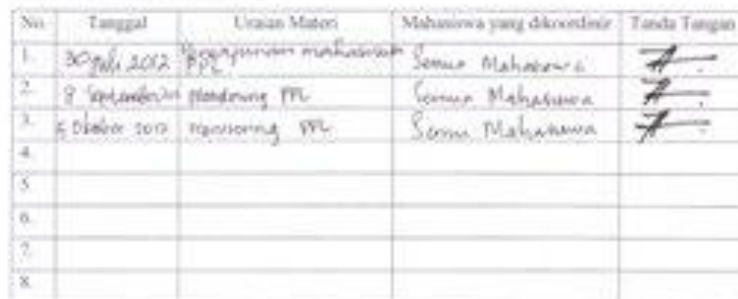 No. Tanggal Uraian Materi Mahasiswa yang dikoordinir Tanda Tangan
1. 30 Juli 2012 mahasiswa PPL Semua Mahasiswa
2. 8 September Monitoring PPL Semua Mahasiswa
3. 5 Oktober 2012 Monitoring PPL Semua Mahasiswa
4.
5.
6.
7.
8.